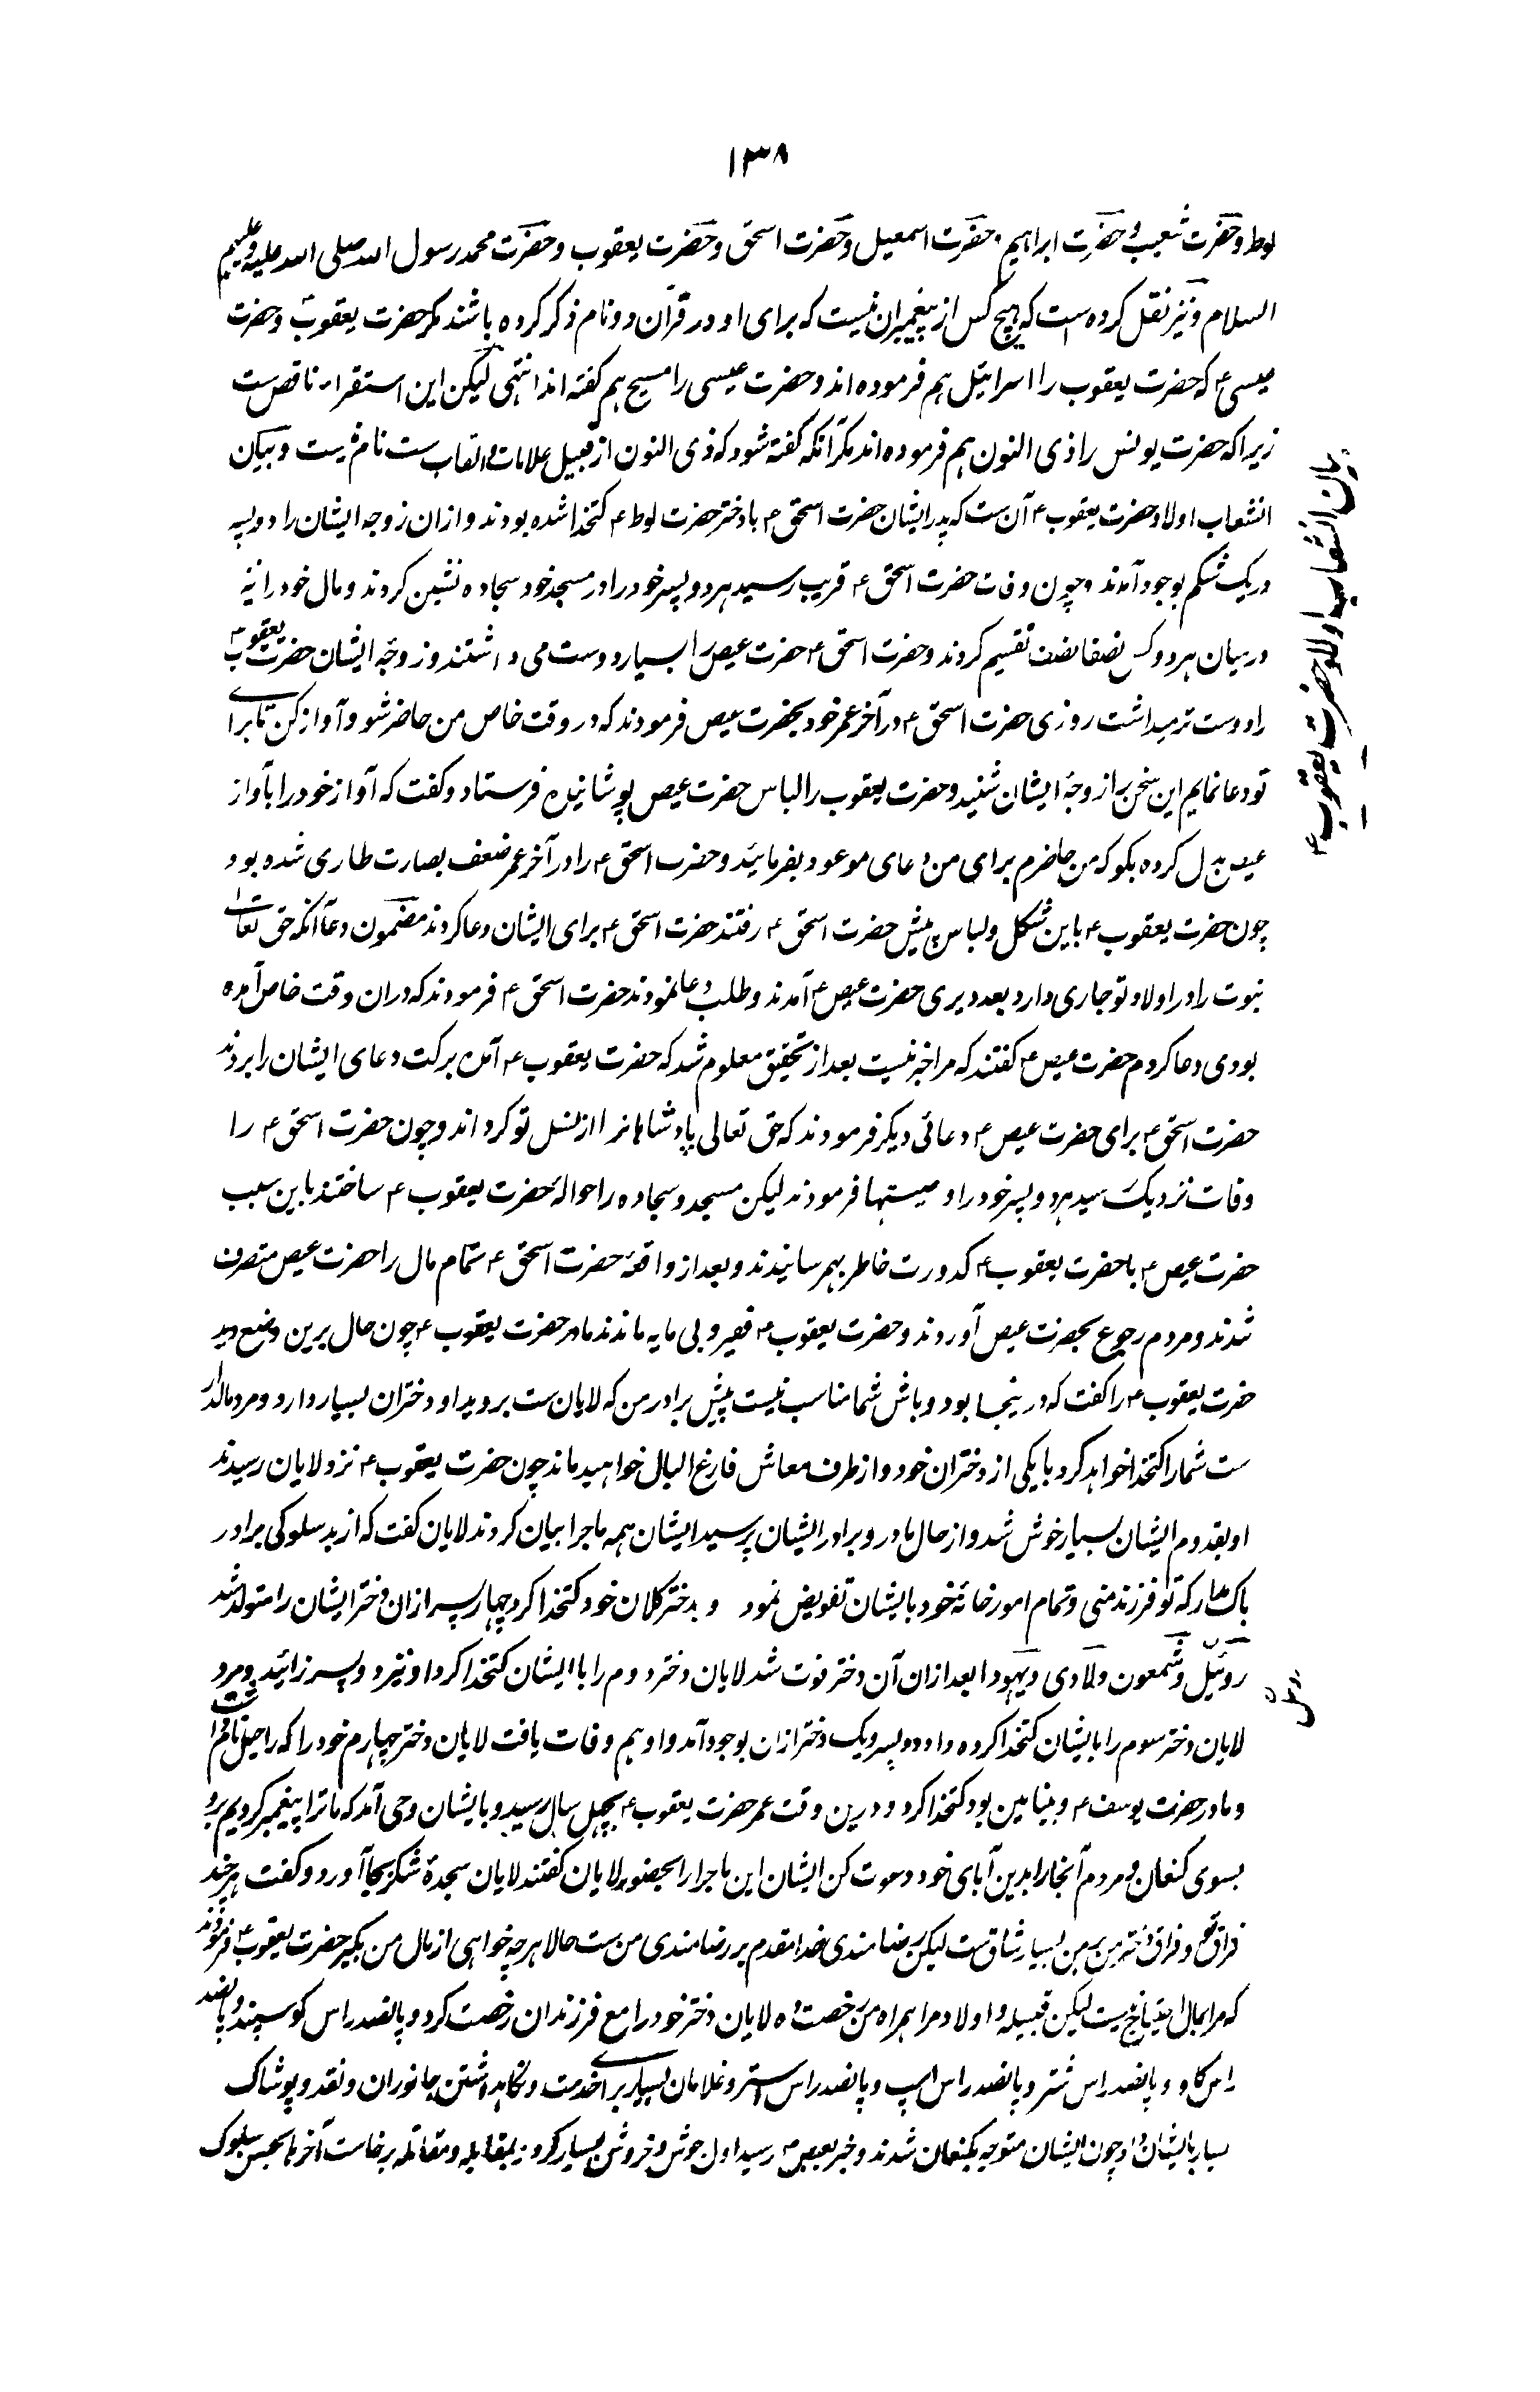 ۱۳۸
لوط و حضرت شعیب و حضرت ابراهیم حضرت اسمعیل و حضرت اسحق و حضرت یعقوب و حضرت محمد رسول الله صلی الله علیه و علیهم
السلام و نیز نقل کرده است که هیچ کس از پیغمبران نیست که برای او در قرآن دو نام ذکر کرده باشند مگر حضرت یعقوب و حضرت
عیسی ۴ که حضرت یعقوب را اسرائیل هم فرموده اند و حضرت عیسی را مسیح هم گفته اند انتهی لیکن این استقراء ناقص ست
زیرا که حضرت یونس را ذی النون هم فرموده اند مگر آنکه گفته شود که ذی النون از قبیل علامات و القاب ست نام نیست و بیان
انشعاب اولاد حضرت یعقوب ۴ آن ست که پدر ایشان حضرت اسحق ۴ با دختر حضرت لوط ۴ کتخدا شده بودند و ازان زوجه ایشان را دو پسر
در یک شکم بوجود آمدند و چون وفات حضرت اسحق ۴ قریب رسید هر دو پسر خود را در مسجد خود سجاده نشین کردند و مال خود را نیز
درمیان هر دو کس نصفا نصف تقسیم کردند و حضرت اسحق ۴ حضرت عیص را بسیار دوست می داشتند و زوجهٔ ایشان حضرت یعقوب ۴
را دوست تر میداشت روزی حضرت اسحق ۴ در آخر عمر خود بحضرت عیص فرمودند که در وقت خاص من حاضر شو و آواز کن تا برای
تو دعا نمایم این سخن را زوجهٔ ایشان شنید و حضرت یعقوب را لباس حضرت عیص پوشانیده فرستاد و گفت که آواز خود را بآواز
عیص بدل کرده بگو که من حاضرم برای من دعای موعود بفرمائید و حضرت اسحق ۴ را در آخر عمر ضعف بصارت طاری شده بود
چون حضرت یعقوب ۴ باین شکل و لباس پیش حضرت اسحق ۴ رفتند حضرت اسحق ۴ برای ایشان دعا کردند مضمون دعا آنکه حق تعالی
نبوت را در اولاد تو جاری دارد بعد دیری حضرت عیص ۴ آمدند و طلب دعا نمودند حضرت اسحق ۴ فرمودند که دران وقت خاص آمده
بودی دعا کردم حضرت عیص ۴ گفتند که مرا خبر نیست بعد از تحقیق معلوم شد که حضرت یعقوب ۴ آمده برکت دعای ایشان را بردند
حضرت اسحق ۴ برای حضرت عیص ۴ دعائی دیگر فرمودند که حق تعالی پادشاهانرا از نسل تو گرداند و چون حضرت اسحق ۴ را
وفات نزدیک رسید هر دو پسر خود را وصیتها فرمودند لیکن مسجد و سجاده را حوالهٔ حضرت یعقوب ۴ ساختند باین سبب
حضرت عیص ۴ با حضرت یعقوب ۴ کدورت خاطر بهم رسانیدند و بعد از واقعهٔ حضرت اسحق ۴ تمام مال را حضرت عیص متصرف
شدند و مردم رجوع بحضرت عیص آوردند و حضرت یعقوب ۴ فقیر و بی مایه ماندند مادر حضرت یعقوب ۴ چون حال برین وضع دید
حضرت یعقوب ۴ را گفت که در ینجا بود و باش شما مناسب نیست پیش برادر من که لایان ست بروید او دختران بسیار دارد و مرد مالدار
ست شما را کتخدا خواهد کرد با یکی از دختران خود و از طرف معاش فارغ البال خواهید ماند چون حضرت یعقوب ۴ نزد لایان رسیدند
او بقدوم ایشان بسیار خوش شد و از حال مادر و برادر ایشان پرسید ایشان همه ماجرا بیان کردند لایان گفت که از بد سلوکی برادر
باک مدار که تو فرزند منی و تمام امور خانهٔ خود بایشان تفویض نمود و بدختر کلان خود کتخدا کرد چهار پسر ازان دختر ایشان را متولد شد
روئیل و شمعون و لاوی و یهودا بعد ازان آن دختر فوت شد لایان دختر دوم را با ایشان کتخدا کرد او نیز دو پسر زائید و مرد
لایان دختر سوم را بایشان کتخدا کرده داد دو پسر و یک دختر ازان بوجود آمد و او هم وفات یافت لایان دختر چهارم خود را که راحیل نام داشت
و مادر حضرت یوسف ۴ و بنیامین بود کتخدا کرد و درین وقت عمر حضرت یعقوب ۴ بچهل سال رسید و بایشان وحی آمد که ما ترا پیغمبر کردیم برو
بسوی کنعان و مردم آنجا را بدین آبای خود دعوت کن ایشان این ماجرا را بحضور لایان گفتند لایان سجدهٔ شکر بجا آورد و گفت هر چند
فراق تو و فراق دختر من بر من بسیار شاق ست لیکن رضامندی خدا مقدم بر رضامندی من ست حالا هر چه خواهی از مال من بگیر حضرت یعقوب ۴ فرمودند
که مرا بمال احتیاج نیست لیکن قبیله و اولاد مرا همراه من رخصت ده لایان دختر خود را مع فرزندان رخصت کرد و پانصد راس گوسپند و پانصد
راس گاو و پانصد راس شتر و پانصد راس اسپ و پانصد راس استر و غلامان بسیار برای خدمت و نگاهداشتن جانوران و نقد و پوشاک
بسیار بایشان داد چون ایشان متوجه بکنعان شدند و خبر بعیص ۴ رسید اول جوش و خروش بسیار کرد و بمقابله و مقاتله برخاست آخر بحسن سلوک
بیان انشعاب اولاد حضرت یعقوب ۴